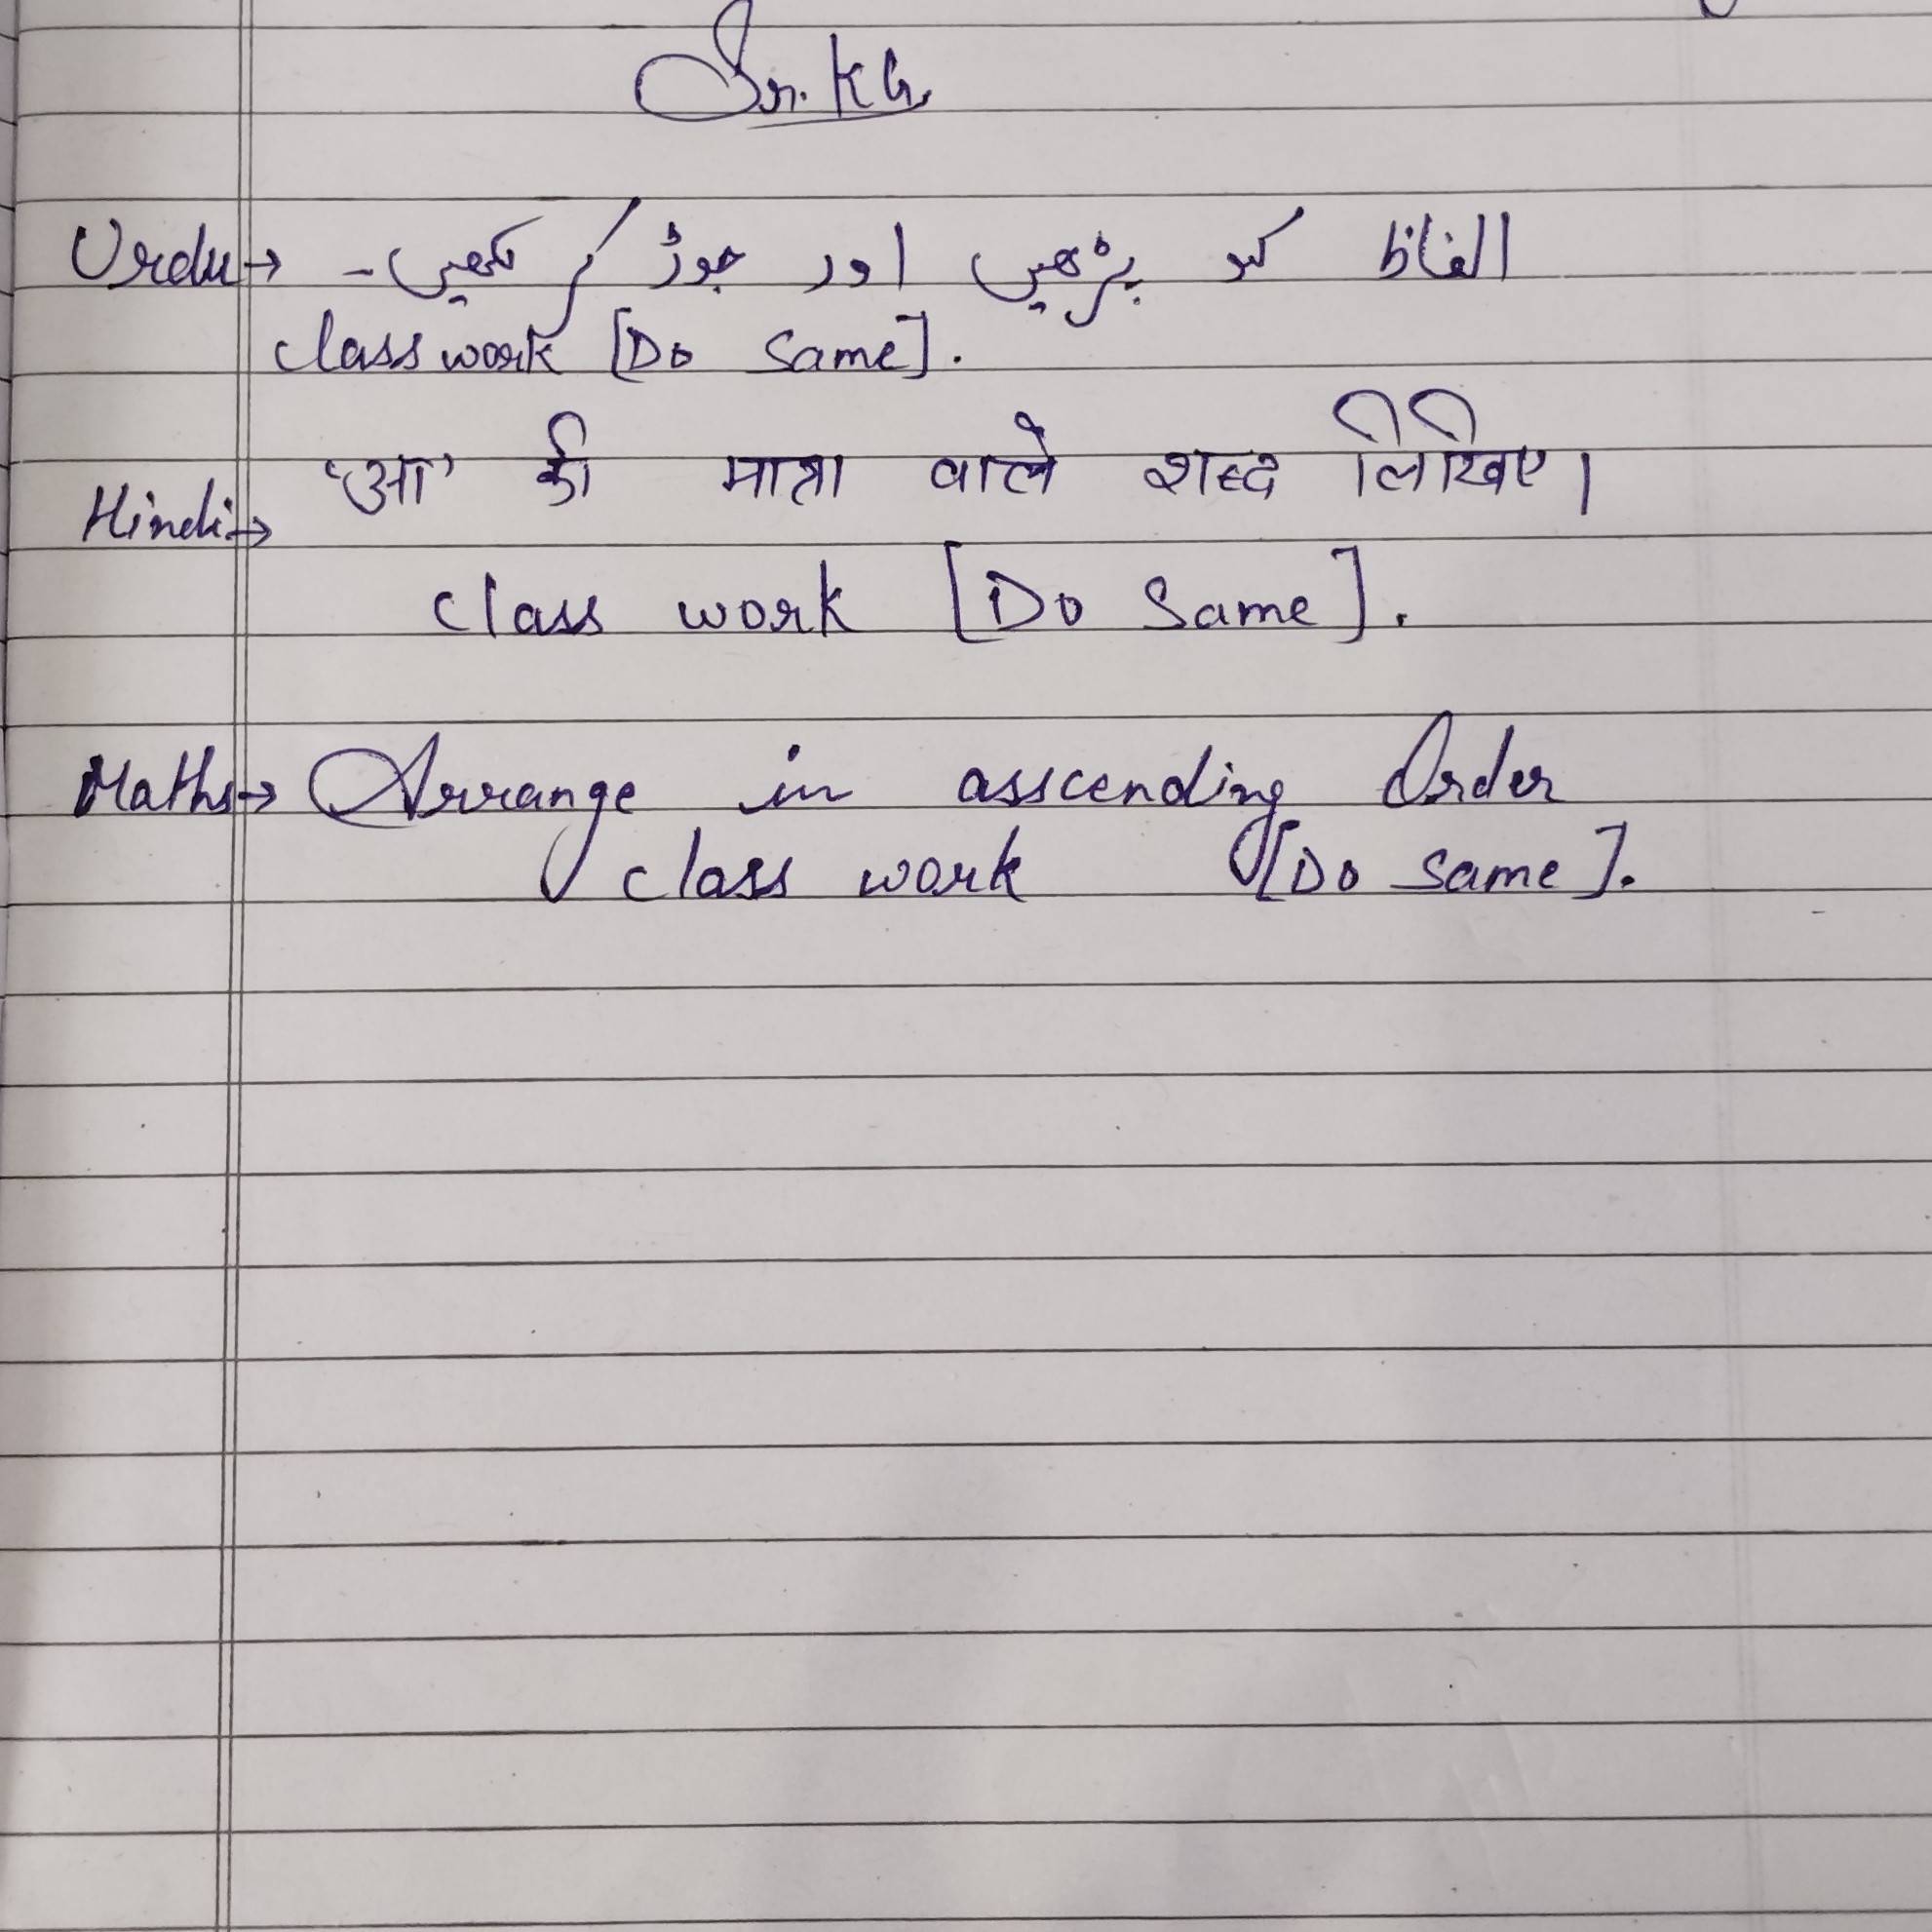 Sr. KG
Urdu → الفاظ کو پڑھیں اور جوڑ کر لکھیں۔
class work [Do Same].
'आ' की मात्रा वाले शब्द लिखिए।
Hindi →
class work [Do Same].
Maths → Arrange in asscending Order
class work [Do same].